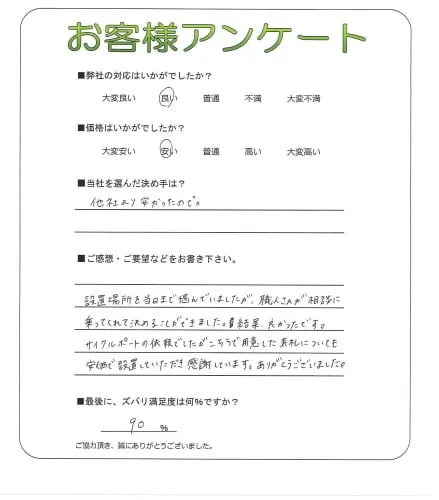 お客様アンケート
■弊社の対応はいかがでしたか？
大変良い　良い　普通　不満　大変不満
■価格はいかがでしたか？
大変安い　安い　普通　高い　大変高い
■当社を選んだ決め手は？
他社より安かったので。
■ご感想・ご要望などをお書き下さい。
設置場所を当日まで悩んでいましたが、職人さんが相談に
乗ってくれて決めることができました。結果、良かったです。
サイクルポートの依頼でしたがこちらで用意した表札についても
安価で設置していただき感謝しています。ありがとうございました。
■最後に、ズバリ満足度は何%ですか？
90 %
ご協力頂き、誠にありがとうございました。